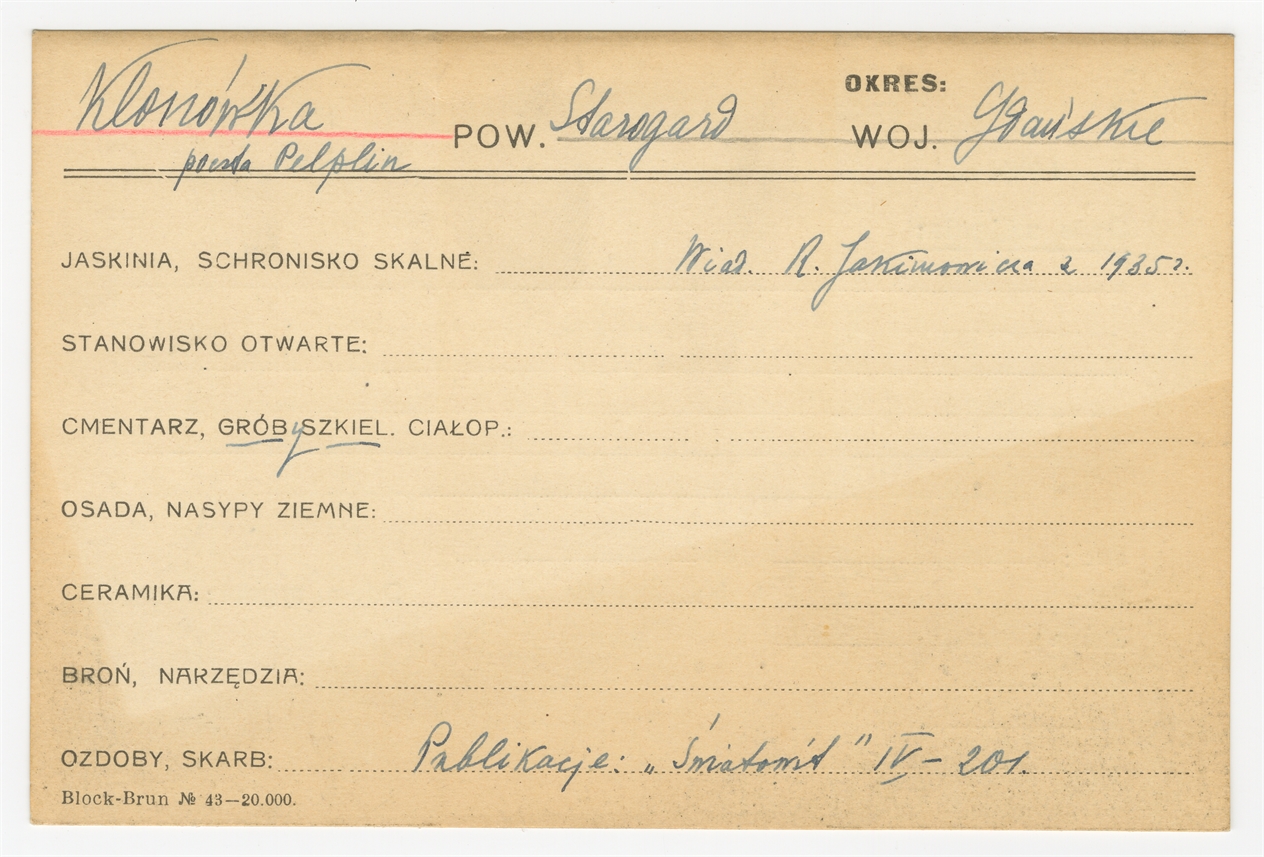 OKRES:
Klonówka POW. Starogard WOJ. Gdańskie
poczta Pelplin
JASKINIA, SCHRONISKO SKALNE: Wiad. R. Jakimowicza z 1935 r.
STANOWISKO OTWARTE:
CMENTARZ, GRÓBy SZKIEL. CIAŁOP.:
OSADA, NASYPY ZIEMNE:
CERAMIKA:
BROŃ, NARZĘDZIA:
OZDOBY, SKARB: Publikacje: „Światowit" IV – 201.
Block-Brun № 43—20.000.